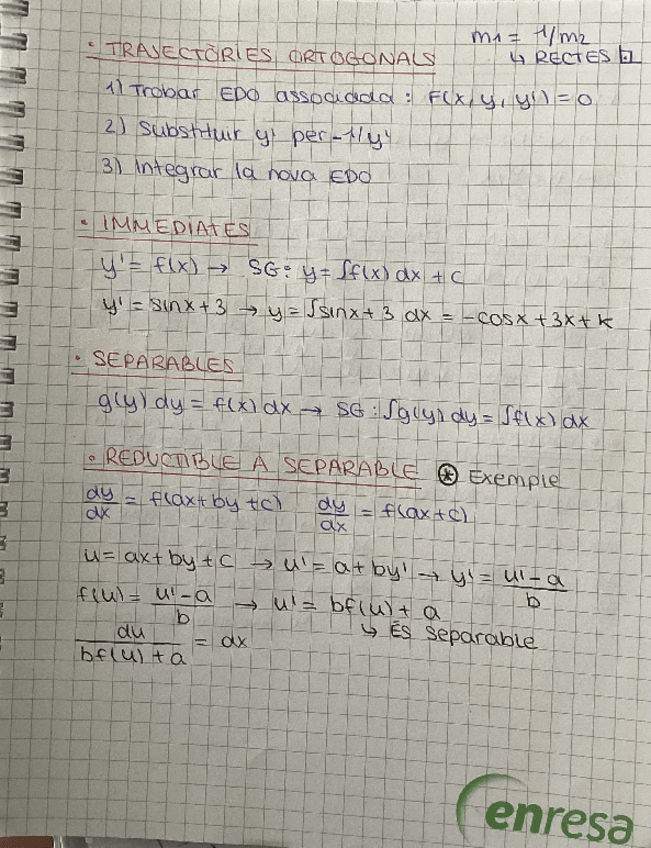 m1 = 1/m2
• TRAJECTÒRIES ORTOGONALS ↳ RECTES
1) Trobar EDO associada: F(x, y, y') = 0
2) Substituir y' per -1/y'
3) Integrar la nova EDO
• IMMEDIATES
y' = f(x) → SG: y = ∫f(x) dx + C
y' = sinx + 3 → y = ∫sinx + 3 dx = -cosx + 3x + K
• SEPARABLES
g(y) dy = f(x) dx → SG: ∫g(y) dy = ∫f(x) dx
• REDUCTIBLE A SEPARABLE ⊛ Exemple
dy/dx = f(ax + by + c) dy/dx = f(ax + c)
u = ax + by + c → u' = a + by' → y' = (u' - a)/b
f(u) = (u' - a)/b → u' = bf(u) + a
↳ És separable
du/(bf(u) + a) = dx
enresa